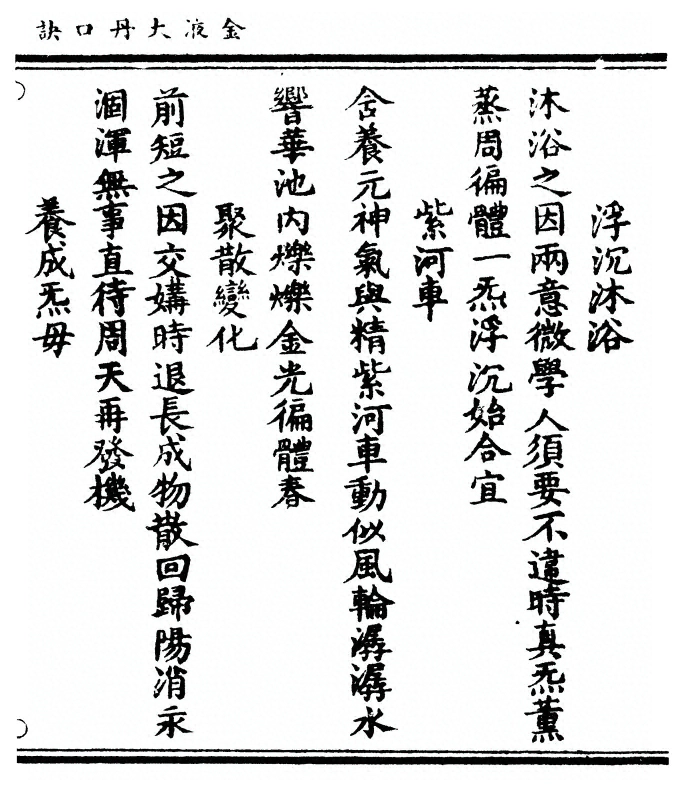 金液大丹口訣
浮沉沐浴
沐浴之因兩意微學人須要不違時真炁薰
蒸周徧體一炁浮沉始合宜
紫河車
含養元神氣與精紫河車動似風輪潺潺水
響華池內爍爍金光徧體春
聚散變化
前短之因交媾時退長成物散回歸陽消汞
涸渾無事直待周天再發機
養成炁母